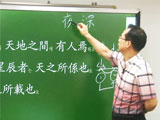 夜深
天地之間 有人焉
星辰者 天之所係也
所載也